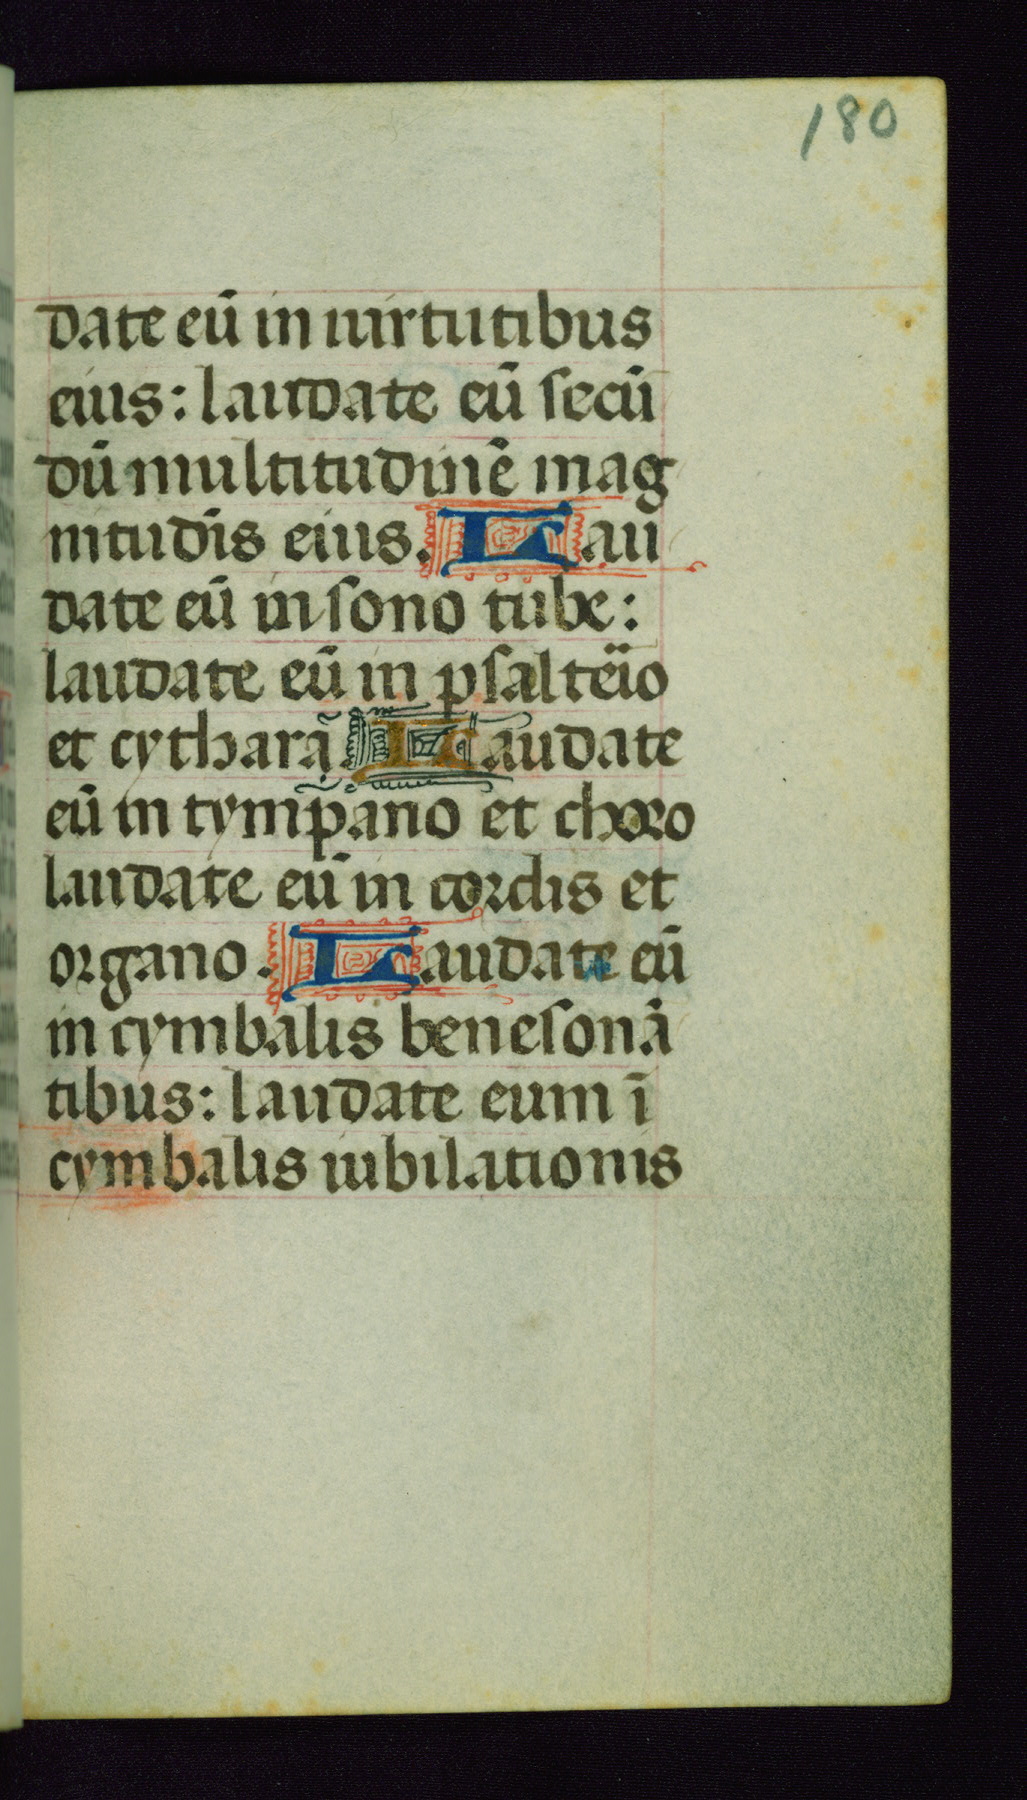 180
date eū in uirtutibus
eius: laudate eū secū
dū multitudinē mag
nitudīs eius. Lau
date eū in sono tube:
laudate eū in psalteīo
et cythara. Laudate
eū in tympano et choro
laudate eū in cordis et
organo. Laudate eū
in cymbalis benesonā
tibus: laudate eum ī
cymbalis iubilationis